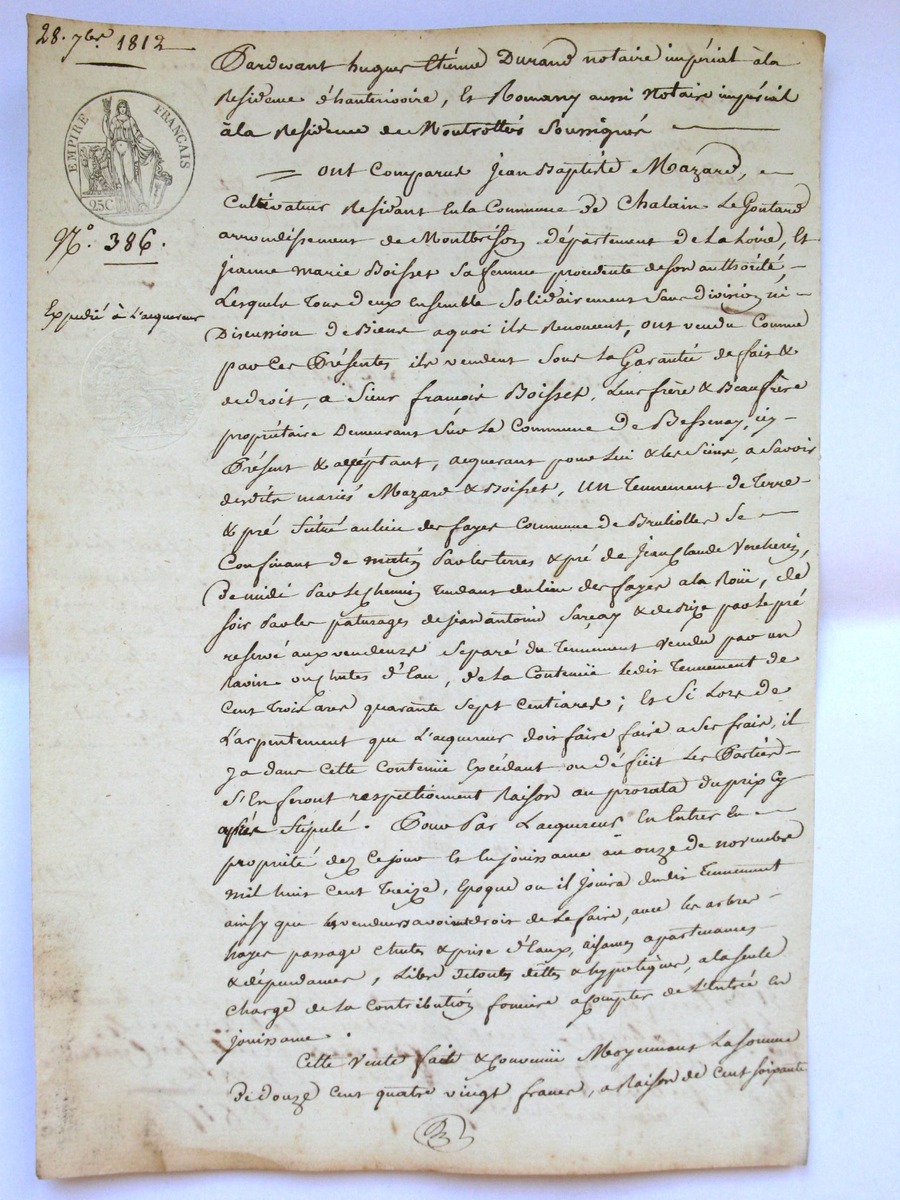 28. 7bre 1812
EMPIRE FRANÇAIS
25C
N° 386.
Expédié à l'acquereur
Pardevant hugues Etienne Durand notaire impérial à la
Residence d'hauterivoire, Et Romany aussi Notaire impérial
à la Residence de Montrottier Soussignés
ont Comparus jean Baptiste Mazard,
Cultivateur Residant En la Commune de Chalain Le Contard
arrondissement de Montbrison département de La Loire, Et
jeanne marie Boisset sa femme procedente de son authorité,
Lesquels Tous deux Ensemble Solidairement Sans division ni
Discussion de Biens aquoi ils Renoncent, ont vendu Comme
par Ces Présentes ils vendent Sous la Garantie de fait &
de droit, a Sieur francois Boisset, Leur frère & Beaufrère
propriétaire Demeurant Sur La Commune de Bessenay, icy
Présent & acceptant, acquerant pour Lui & les Siens, a Savoir
desdits mariés Mazard & Boisset, un Tennement de Terre
& pré Situé au lieu des fayes Commune de Brulliolles Se
Confinant de matin Par les terres & pré de Jean Claude Vercherin,
De midi Par Le chemin Tendant du lieu des fayes a la Roüe, de
soir Par les paturages de jean antoine Sarçay & de bize par le pré
reservé aux vendeurs Separé du Tennement Vendu par un
Ravin ou chutes d'Eau, de La Contenüe ledit Tennement de
Cent Trois ares quarante Sept Centiares ; Et Si Lors de
L'arpentement que L'acquereur doit faire faire a ses frais, il
y a dans cette Contenüe Excédant ou déficit Les Parties
S'En feront respectivement Raison au prorata du prix cy
après Stipulé. Pour Par L'acquereur En Entrer En
propriété dez Ce jour Et En jouissance au onze de novembre
mil huit Cent Treize, Epoque ou il jouira dudit Tennement
ainsy que les vendeurs avoint droit de Le faire, avec les arbres
hayes passage chutes & prise d'Eaux, aisances apartenances
& dépendances, Libre de toutes dettes & hypotèques, a la seule
Charge de La Contribution fonciere a compter de L'Entrée En
jouissance.
Cette Vente faite & Convenüe Moyennant La Somme
De douze Cent quatre vingt francs, a Raison de Cent soixante